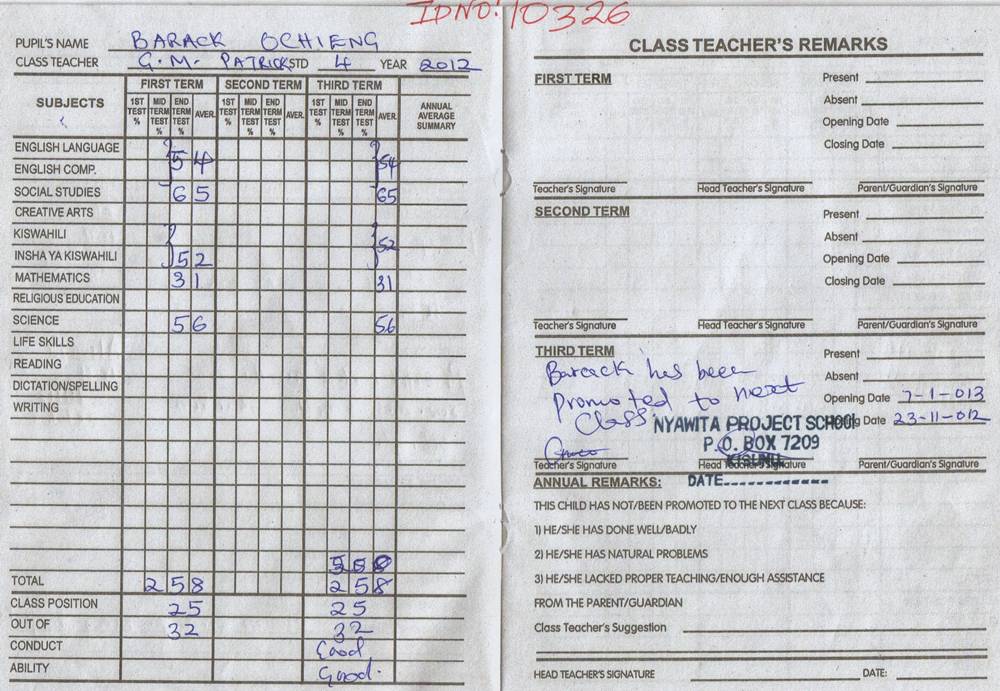 ID NO: 10326
PUPIL'S NAME BARACK OCHIENG
CLASS TEACHER G.M. PATRICK STD 4 YEAR 2012
SUBJECTS FIRST TERM SECOND TERM THIRD TERM ANNUAL AVERAGE SUMMARY
1ST TEST % MID TERM TEST % END TERM TEST % AVER. 1ST TEST % MID TERM TEST % END TERM TEST % AVER. 1ST TEST % MID TERM TEST % END TERM TEST % AVER.
ENGLISH LANGUAGE
ENGLISH COMP. 54 54
SOCIAL STUDIES 65 65
CREATIVE ARTS
KISWAHILI
INSHA YA KISWAHILI 52 52
MATHEMATICS 31 31
RELIGIOUS EDUCATION
SCIENCE 56 56
LIFE SKILLS
READING
DICTATION/SPELLING
WRITING
TOTAL 258 258
CLASS POSITION 25 25
OUT OF 32 32
CONDUCT Good
ABILITY Good.
CLASS TEACHER'S REMARKS
FIRST TERM Present
Absent
Opening Date
Closing Date
Teacher's Signature Head Teacher's Signature Parent/Guardian's Signature
SECOND TERM Present
Absent
Opening Date
Closing Date
Teacher's Signature Head Teacher's Signature Parent/Guardian's Signature
THIRD TERM Present
Absent
Barack has been
promoted to next
Class
Opening Date 7-1-013
Date 23-11-012
NYAWITA PROJECT SCHOOL
P.O. BOX 7209
KISUMU
Teacher's Signature Head Teacher's Signature Parent/Guardian's Signature
ANNUAL REMARKS: DATE
THIS CHILD HAS NOT/BEEN PROMOTED TO THE NEXT CLASS BECAUSE:
1) HE/SHE HAS DONE WELL/BADLY
2) HE/SHE HAS NATURAL PROBLEMS
3) HE/SHE LACKED PROPER TEACHING/ENOUGH ASSISTANCE
FROM THE PARENT/GUARDIAN
Class Teacher's Suggestion
HEAD TEACHER'S SIGNATURE DATE: